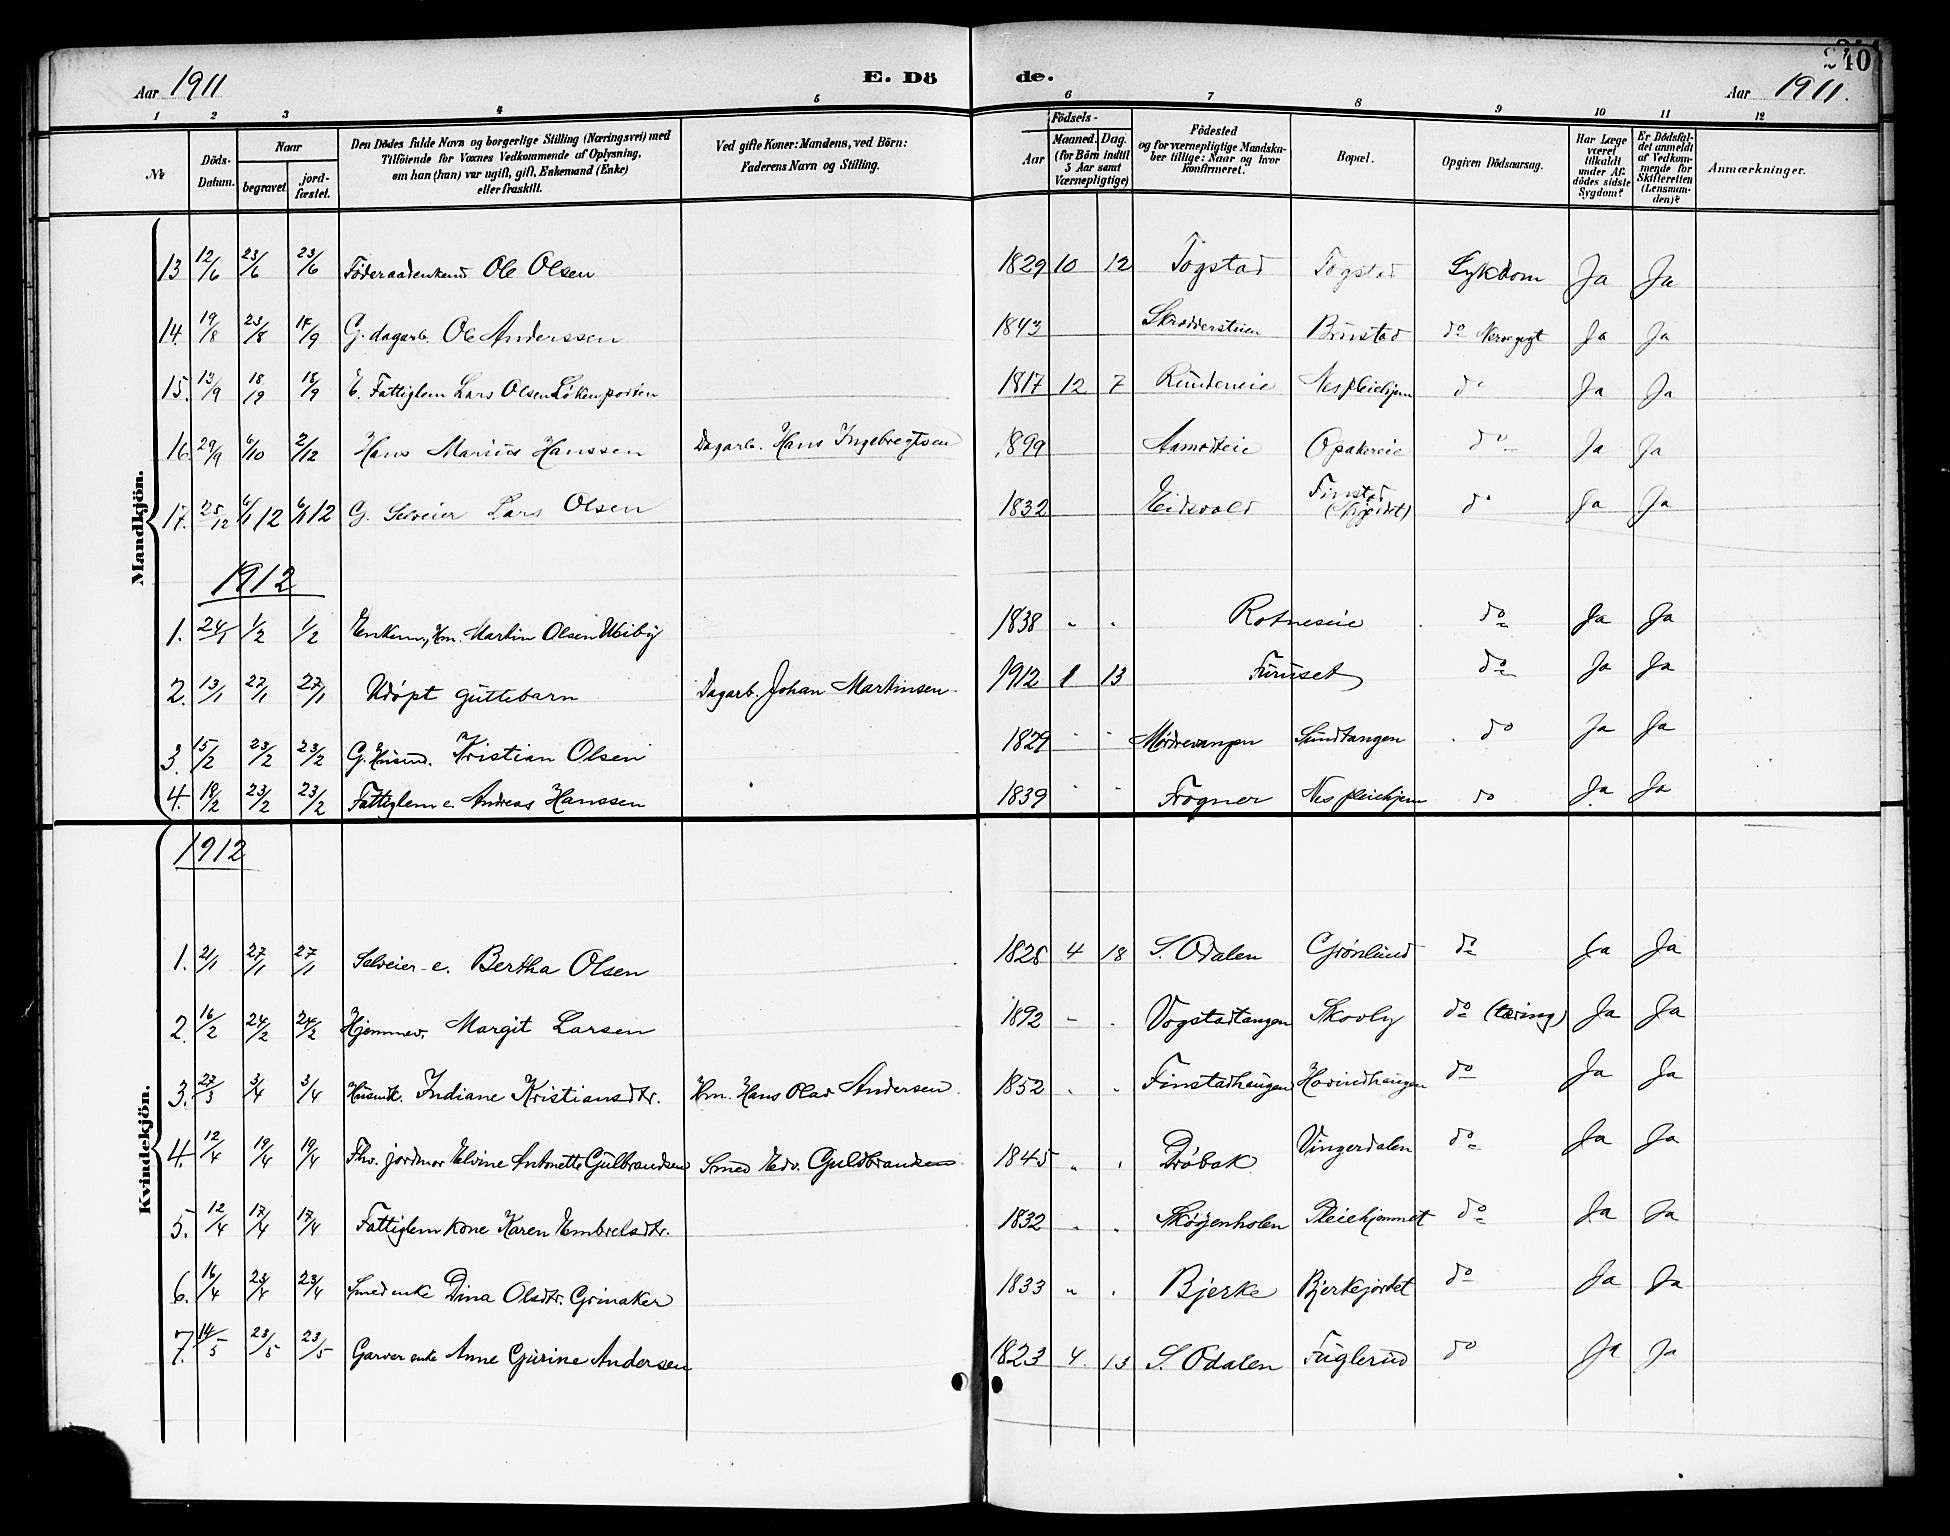 240
Aar 1911 E. Dö de. Aar 1911.
1 2 3 4 5 6 7 8 9 10 11 12
№ Döds-Datum. Naar begravet. jord-fæstet. Den Dödes fulde Navn og borgerlige Stilling (Næringsvei) med Tilföiende for Voxnes Vedkommende af Oplysning, om han (hun) var ugift, gift, Enkemand (Enke) eller fraskilt. Ved gifte Koner: Mandens, ved Börn: Faderens Navn og Stilling. Födsels- Aar Maaned. Dag. (for Börn indtil 3 Aar samt Værnepligtige) Födested og for værnepligtige Mandskaber tillige: Naar og hvor konfirmeret. Bopæl. Opgiven Dödsaarsag. Har Læge været tilkaldt under Afdödes sidste Sygdom? Er Dödsfaldet anmeldt af Vedkommende for Skifteretten (Lensmanden)? Anmærkninger.
Mandkjön.
13 12/6 23/6 23/6 Føderaadenkemd Ole Olsen 1829 10 12 Togstad Togstad Sykdom Ja Ja
14. 19/8 23/8 17/9 G. dagarb. Ole Anderssen 1843 Skrødderstuen Brustad do Ja Ja
15. 13/9 18/9 18/9 E. Fattiglem Lars Olsen Løkenporten 1817 12 7 Rundeneie Nes pleiehjem do Ja Ja
16. 29/9 6/10 2/12 Hans Marius Hanssen Dagarb. Hans Ingebregtsen 1899 Aamodteie Opakereie do Ja Ja
17. 25/12 6/1 12 6/1 12 G. Selveier Lars Olsen 1832 Eidsvold Finstad do Ja Ja
1912
1. 24/1 1/2 1/2 Enkem., Hm. Martin Olsen 1838 " " Rotneseie do Ja Ja
2. 13/1 27/1 27/1 Udøpt guttebarn Dagarb. Johan Martinsen 1912 1 13 Furuset do Ja Ja
3. 15/2 23/2 23/2 G. Husmd. Kristian Olsen 1829 " " Mordrevangen Sundtangen do Ja Ja
4. 18/2 23/2 23/2 Fattiglem e. Andreas Hanssen 1839 " " Frogner Nes pleiehjem do Ja Ja
Kvindekjön.
1912
1. 21/1 27/1 27/1 Selveier-e. Bertha Olsen 1828 4 18 S. Odalen Grønlund do Ja Ja
2. 16/2 24/2 24/2 Hjemmev. Margit Larsen 1892 " " Vogstadtangen Skovly do (tæring) Ja Ja
3. 27/3 3/4 3/4 Husmk. Indiane Kristiansdtr. Hm. Hans Olav Andersen 1852 " " Finstadhaugen Hovindhaugen do Ja Ja
4. 12/4 19/4 19/4 Fhv. jordmor Elvine Antonette Gulbrandsen Smed Edv. Guldbrandsen 1845 " " Drøbak Vingerdalen do Ja Ja
5. 12/4 17/4 17/4 Fattiglem kone Karen Embretsdtr. 1832 " " Skøyenholen Pleiehjemmet do Ja Ja
6. 16/4 23/4 23/4 Smedenke Dina Olsdtr. Grinaker 1833 " " Bjerke Bjerkejordet do Ja Ja
7. 14/5 23/5 23/5 Garver enke Anne Gurine Andersen 1823 4. 13 S. Odalen Fuglerud do Ja Ja